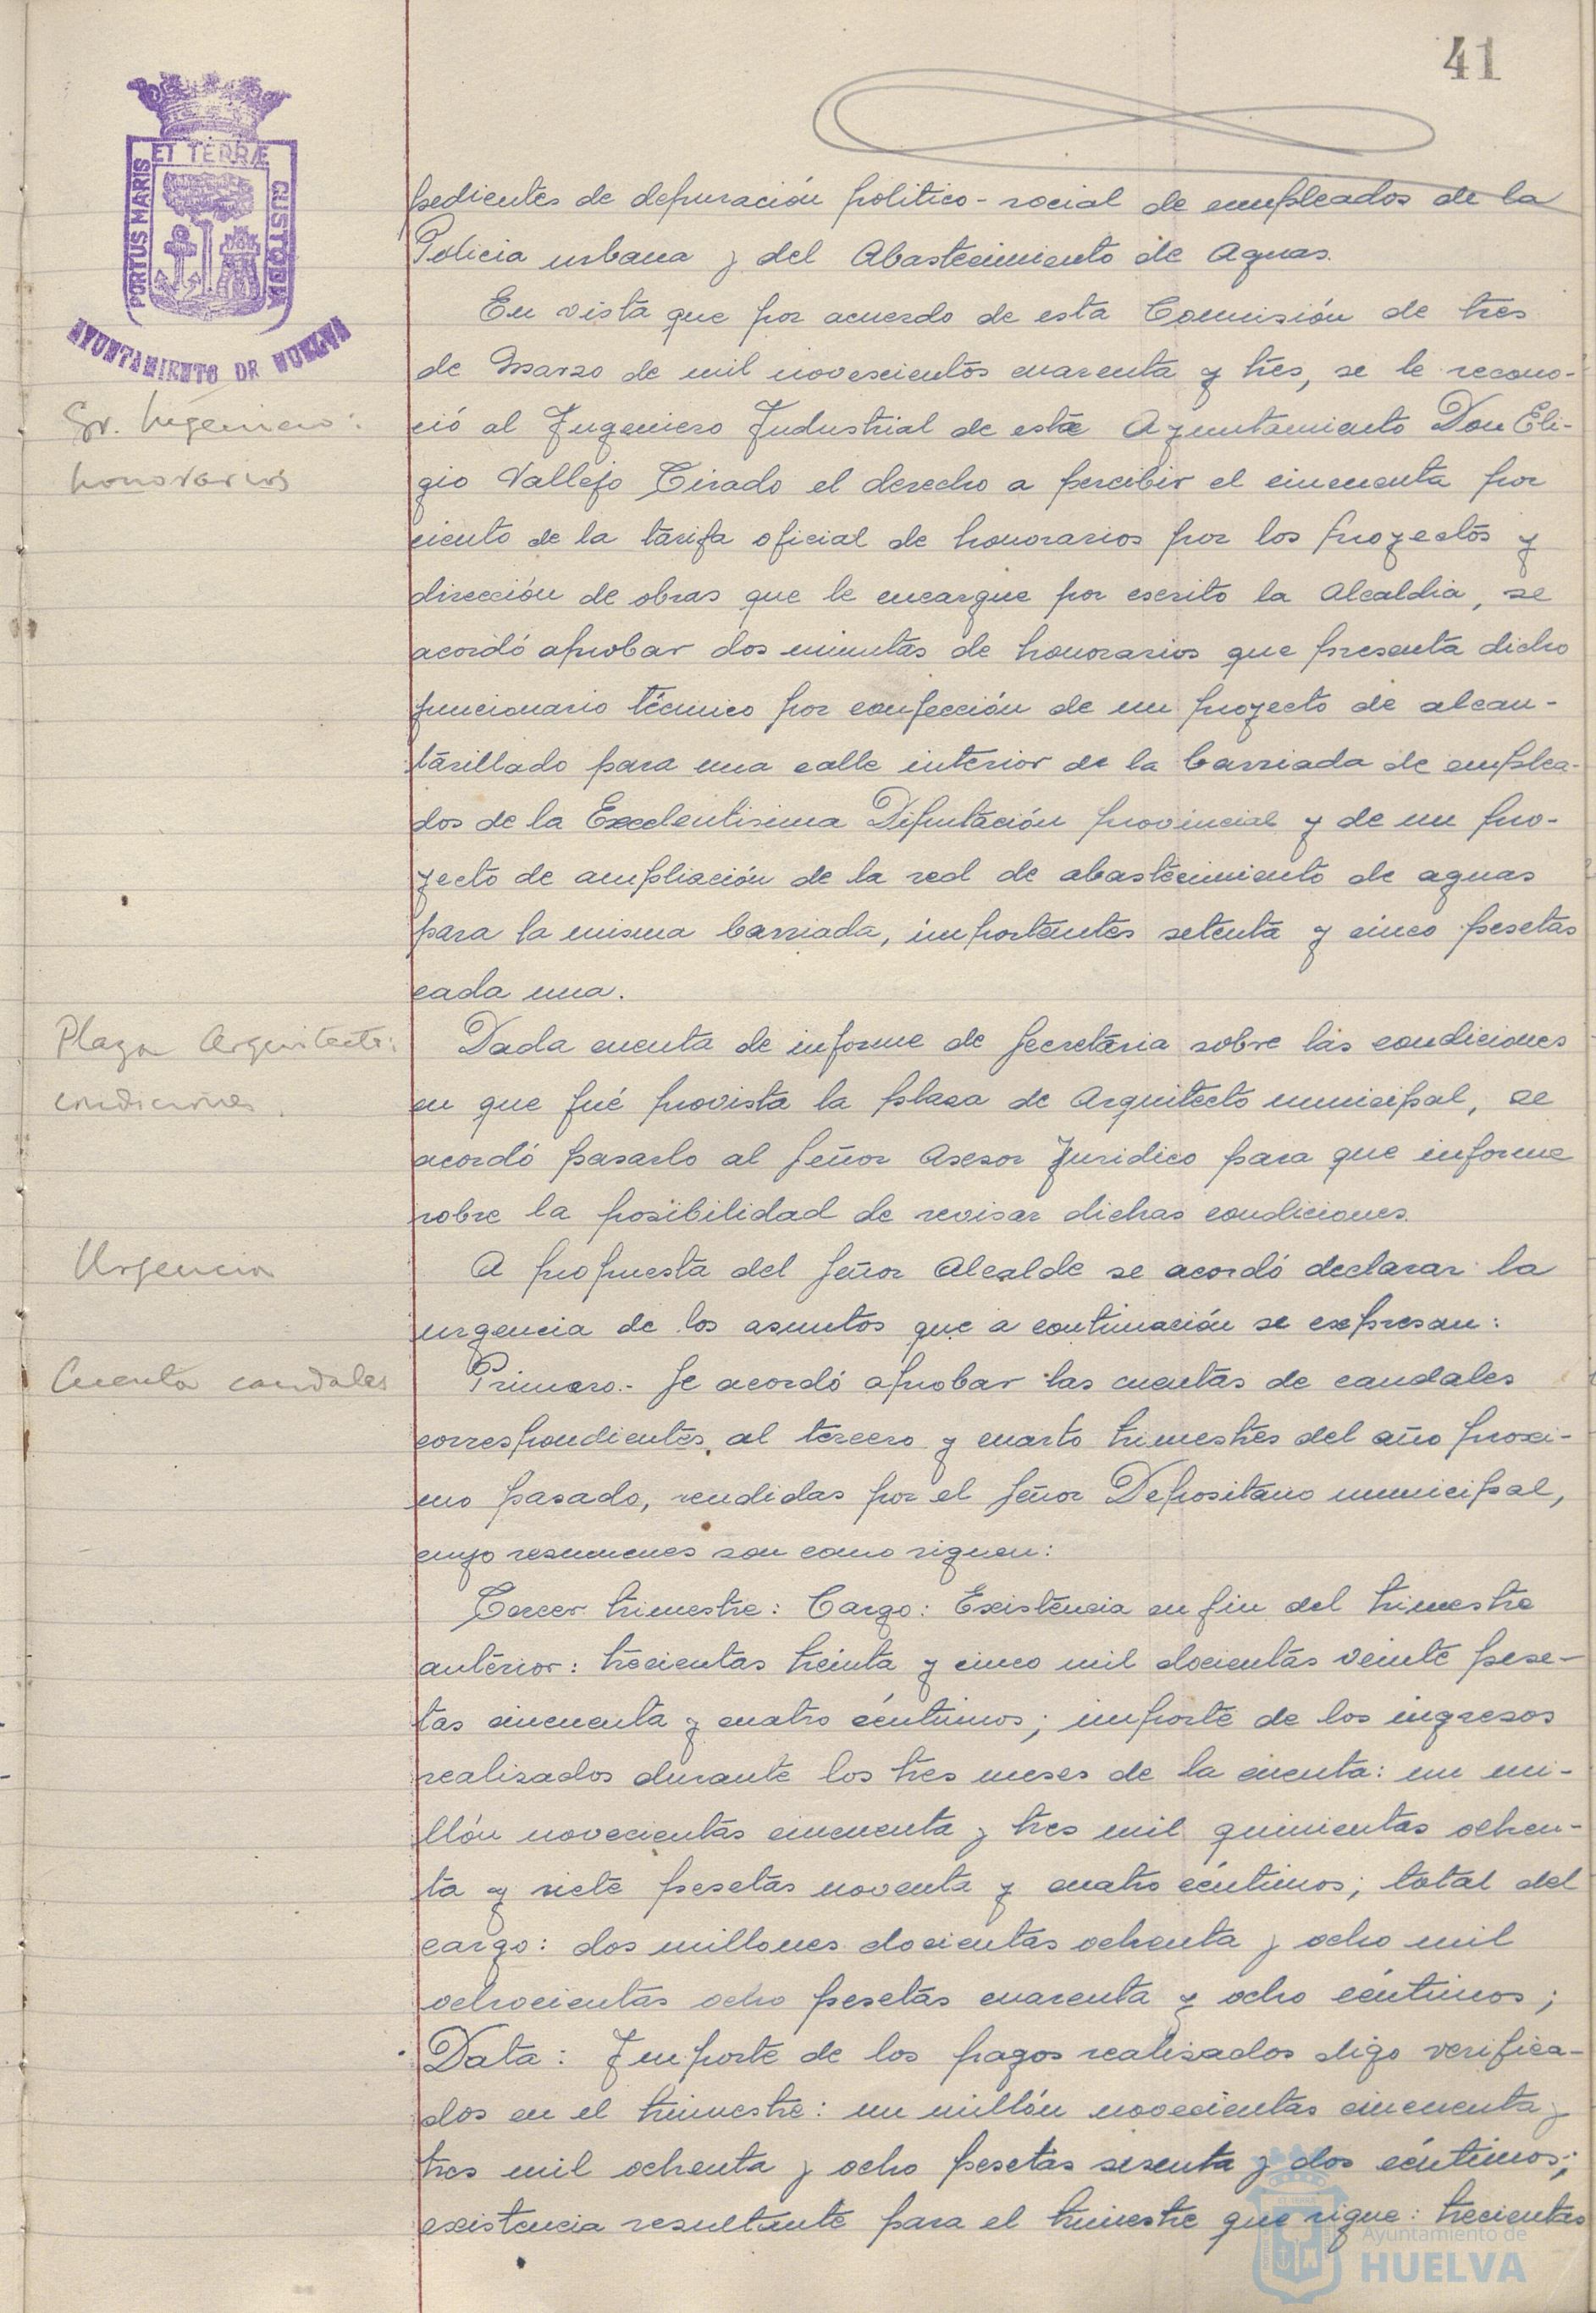 41
ET TERRÆ
PORTUS MARIS
CUSTODIA
AYUNTAMIENTO DE HUELVA
pedientes de depuración politico-social de empleados de la
Policia urbana y del Abastecimiento de Aguas.
En vista que por acuerdo de esta Comisión de tres
de Marzo de mil novescientos cuarenta y tres, se le recono-
Sr. Ingeniero:
ció al Ingeniero Industrial de este Ayuntamiento Don Eli-
honorarios
gio Vallejo Tirado el derecho a percibir el cincuenta por
ciento de la tarifa oficial de honorarios por los proyectos y
dirección de obras que le encargue por escrito la Alcaldia, se
acordó aprobar dos minutas de honorarios que presenta dicho
funcionario técnico por confección de un proyecto de alcan-
tarillado para una calle interior de la barriada de emplea-
dos de la Excelentisima Diputación provincial y de un pro-
yecto de ampliación de la red de abastecimiento de aguas
para la misma barriada, importantes setenta y cinco pesetas
cada una.
Plaza Arquitecto:
Dada cuenta de informe de Secretaria sobre las condiciones
condiciones.
en que fué provista la plaza de Arquitecto municipal, se
acordó pasarlo al Señor Asesor Juridico para que informe
sobre la posibilidad de revisar dichas condiciones.
Urgencia
A propuesta del Señor Alcalde se acordó declarar la
urgencia de los asuntos que a continuación se expresan:
Cuenta caudales
Primero.- Se acordó aprobar las cuentas de caudales
correspondientes al tercero y cuarto trimestres del año proxi-
mo pasado, rendidas por el Señor Depositario municipal,
cuyo resumenes son como siguen:
Tercer trimestre: Cargo: Existencia en fin del trimestre
anterior: trecientas treinta y cinco mil docientas veinte pese-
tas cincuenta y cuatro céntimos; importe de los ingresos
realizados durante los tres meses de la cuenta: un mi-
llón novecientas cincuenta y tres mil quinientas ochen-
ta y siete pesetas noventa y cuatro céntimos; total del
cargo: dos millones docientas ochenta y ocho mil
ochocientas ocho pesetas cuarenta y ocho céntimos;
Data: Importe de los pagos realizados digo verifica-
dos en el trimestre: un millón novecientas cincuenta y
tres mil ochenta y ocho pesetas sesenta y dos céntimos;
existencia resultante para el trimestre que sigue: trecientas
Ayuntamiento de
HUELVA